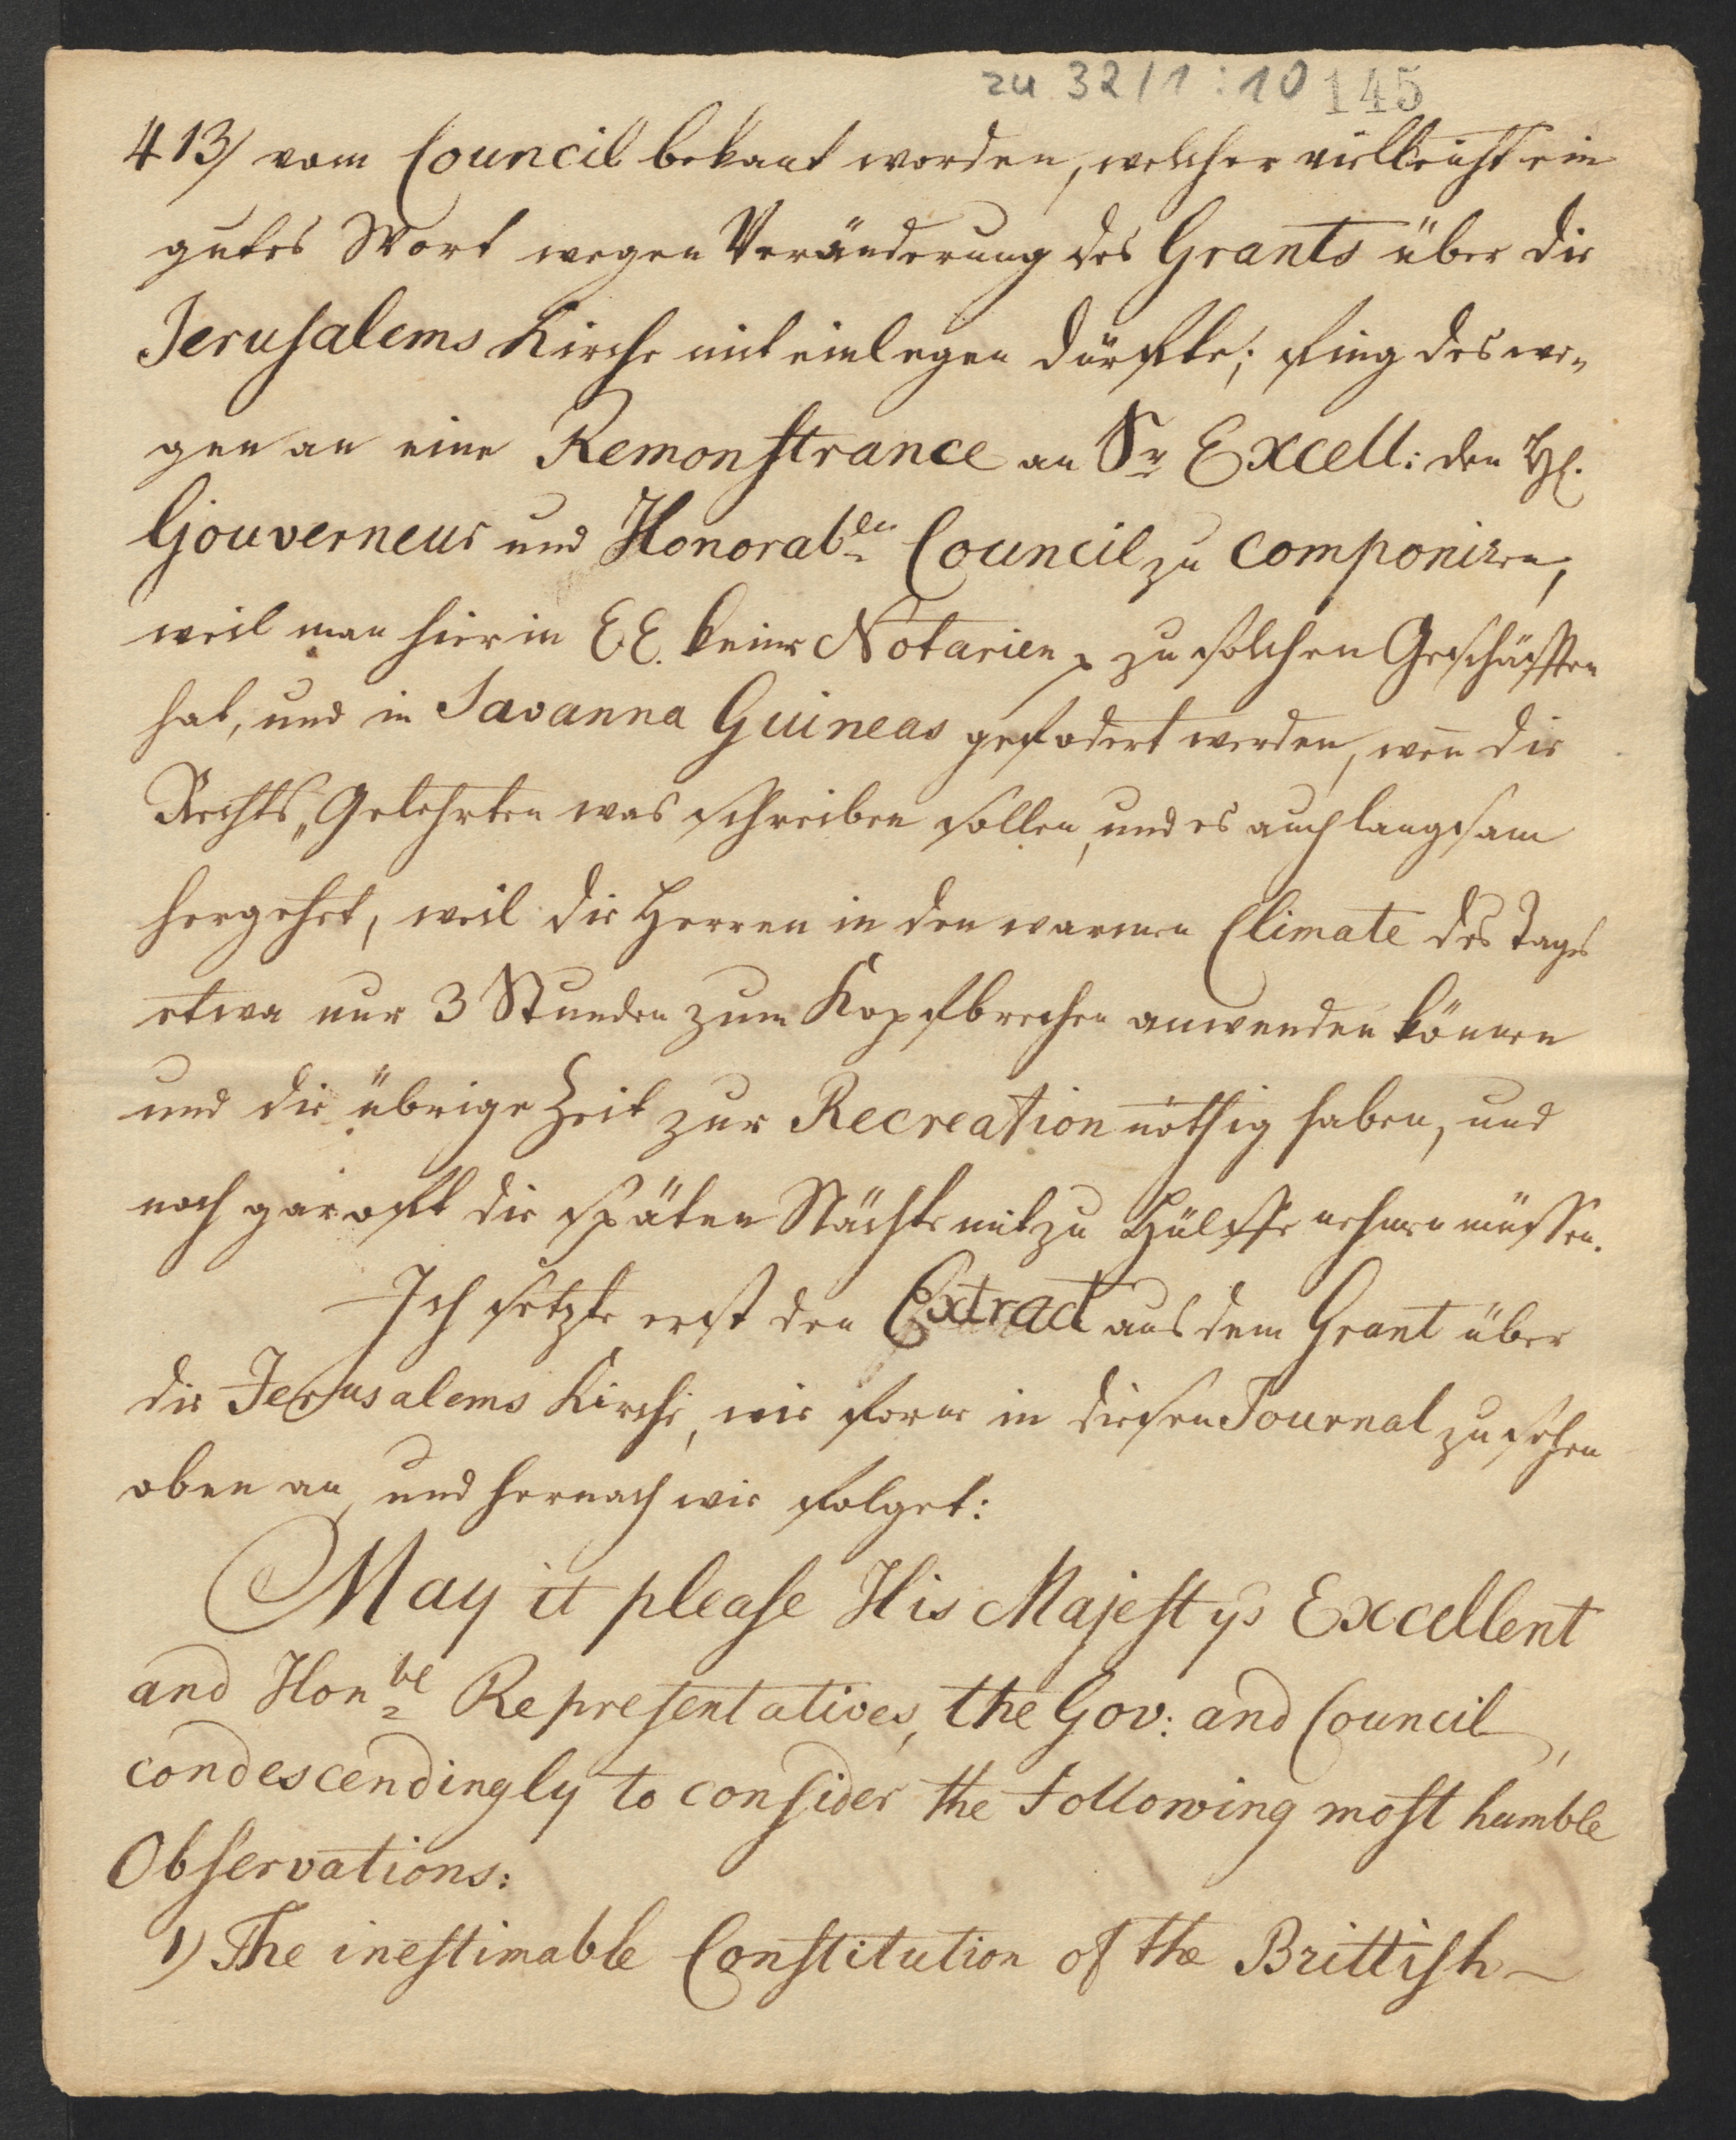 zu 32/1:10 145
413/ vom Council bekant worden, welcher vielleicht ein
gutes Wort wegen Veränderung des Grants über die
Jerusalems Kirche mit einlegen dürfte; fing deswe-
gen an eine Remonstrance an Sr Excell: den H.
Gouverneur und Honorablen Council zu componiren,
weil man hier in EE. keine Notarien zu solchen Geschäfften
hat, und in Savanna Guineas gefodert werden, wen̄ die
Rechts„Gelehrten was schreiben sollen, und es auch langsam
hergehet, weil die Herren in den warmen Climate des Tages
etwa nur 3 Stunden zum Kopfbrechen anwenden können
und die übrige Zeit zur Recreation nöthig haben, und
noch gar oft die späten Nächte mit zu Hülffe nehmen müssen.
Ich setzte erst den Extract aus dem Grant über
die Jerusalems Kirche, wie forne in diesen Journal zu sehen
oben an, und hernach wie folget:
May it please His Majestys Excellent
and Honble Representatives, the Gov: and Council,
condescendingly to consider the Following most humble
Observations:
1) The inestimable Constitution of the Brittish